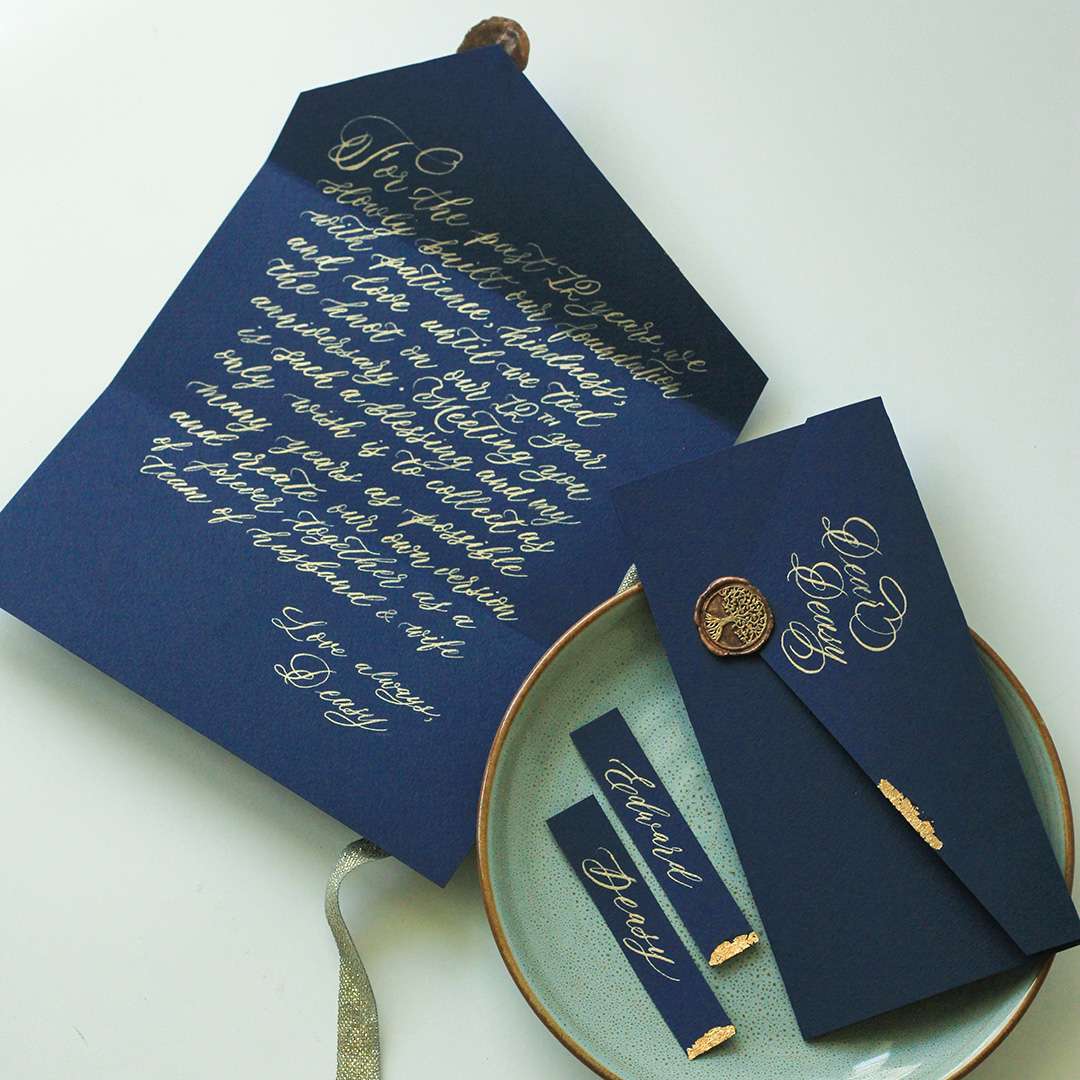 For the past 12 years we
slowly built our foundation
with patience, kindness,
and love until we tied
the knot on our 12th year
anniversary. Meeting you
is such a blessing and my
only wish is to collect as
many years as possible
and create our own version
of forever together as a
team of husband & wife
Love always,
Deasy
Dear
Deasy
Edward
Deasy